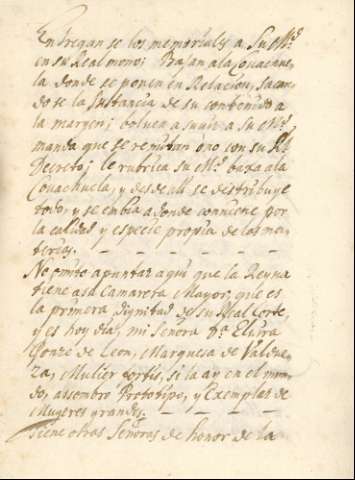 Entregan se los memoriales a Su Mg.d
en su Real mano; Bajan a la Couachue,
la donde se ponen en Relacion, sacan,
do se la Sustancia de su contenido a
la margen; bolven a suuir a su Mg.d
manda que se remitan o no con su Rl.
Decreto; le rubrica su Mg.d baxa a la
Couachuela, y desde alli se destribuye
todo, y se enbia a donde conuiene por
la calidad y especie propia de las ma,
terias.
No omito apuntar aqui que la Reyna
tiene a su Camarera Mayor, que es
la primera Dignidad de su Real Corte,
y es hoy dia, mi Señora D.a Eluira
Ponze de Leon, Marquesa deВаldue,
za, Mulier fortis, si la ay en el mun,
do, assombro Prototipo, y Exemplar de
Mugeres grandes.
Tiene otras Señoras de honor de la